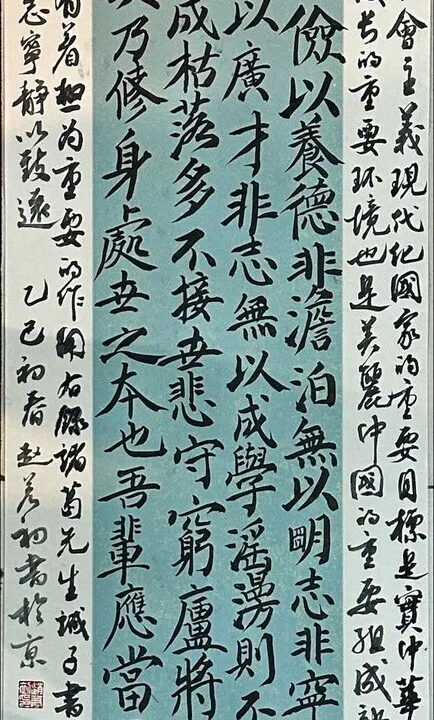 會主義現代化國家的重要目標是實中華
長的重要环境也是美麗中國的重要組成部
儉以養德非澹泊無以明志非寧
以廣才非志無以成學滛漫則不
成枯落多不接世悲守窮廬將
乃修身處世之本也吾輩應當
有着極为重要的作用右錄諸葛先生誡子書
志寧靜以致遠 乙巳初春趙初書於京